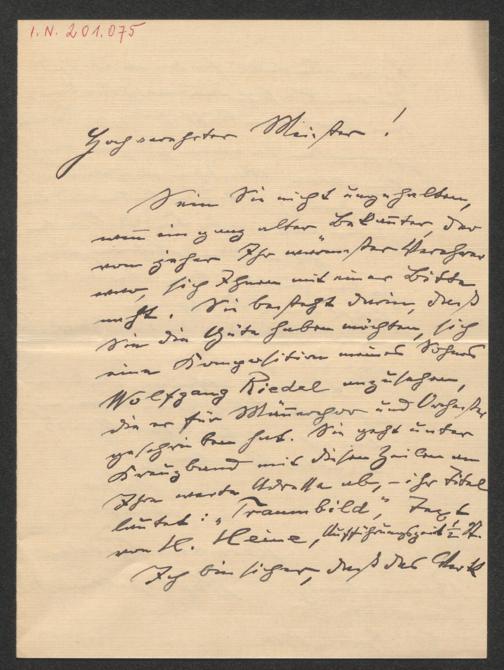 I. N. 201.075
Hochverehrter Meister!
Sein Sie nicht ungehalten,
wenn ein ganz alter Bekannter, der
von jeher Ihr wärmster Verehrer
war, sich Ihnen mit einer Bitte
naht. Sie besteht darin, daß
Sie die Güte haben möchten, sich
eine Komposition meines Sohnes
Wolfgang Riedel anzusehen,
die er für Männerchor und Orchester
geschrieben hat. Sie geht unter
Kreuzband mit diesen Zeilen an
Ihre werte Adresse ab, – ihr Titel
lautet: "Traumbild", Text
von H. Heine, Aufführungszeit ½
Ich bin sicher, daß das Werk